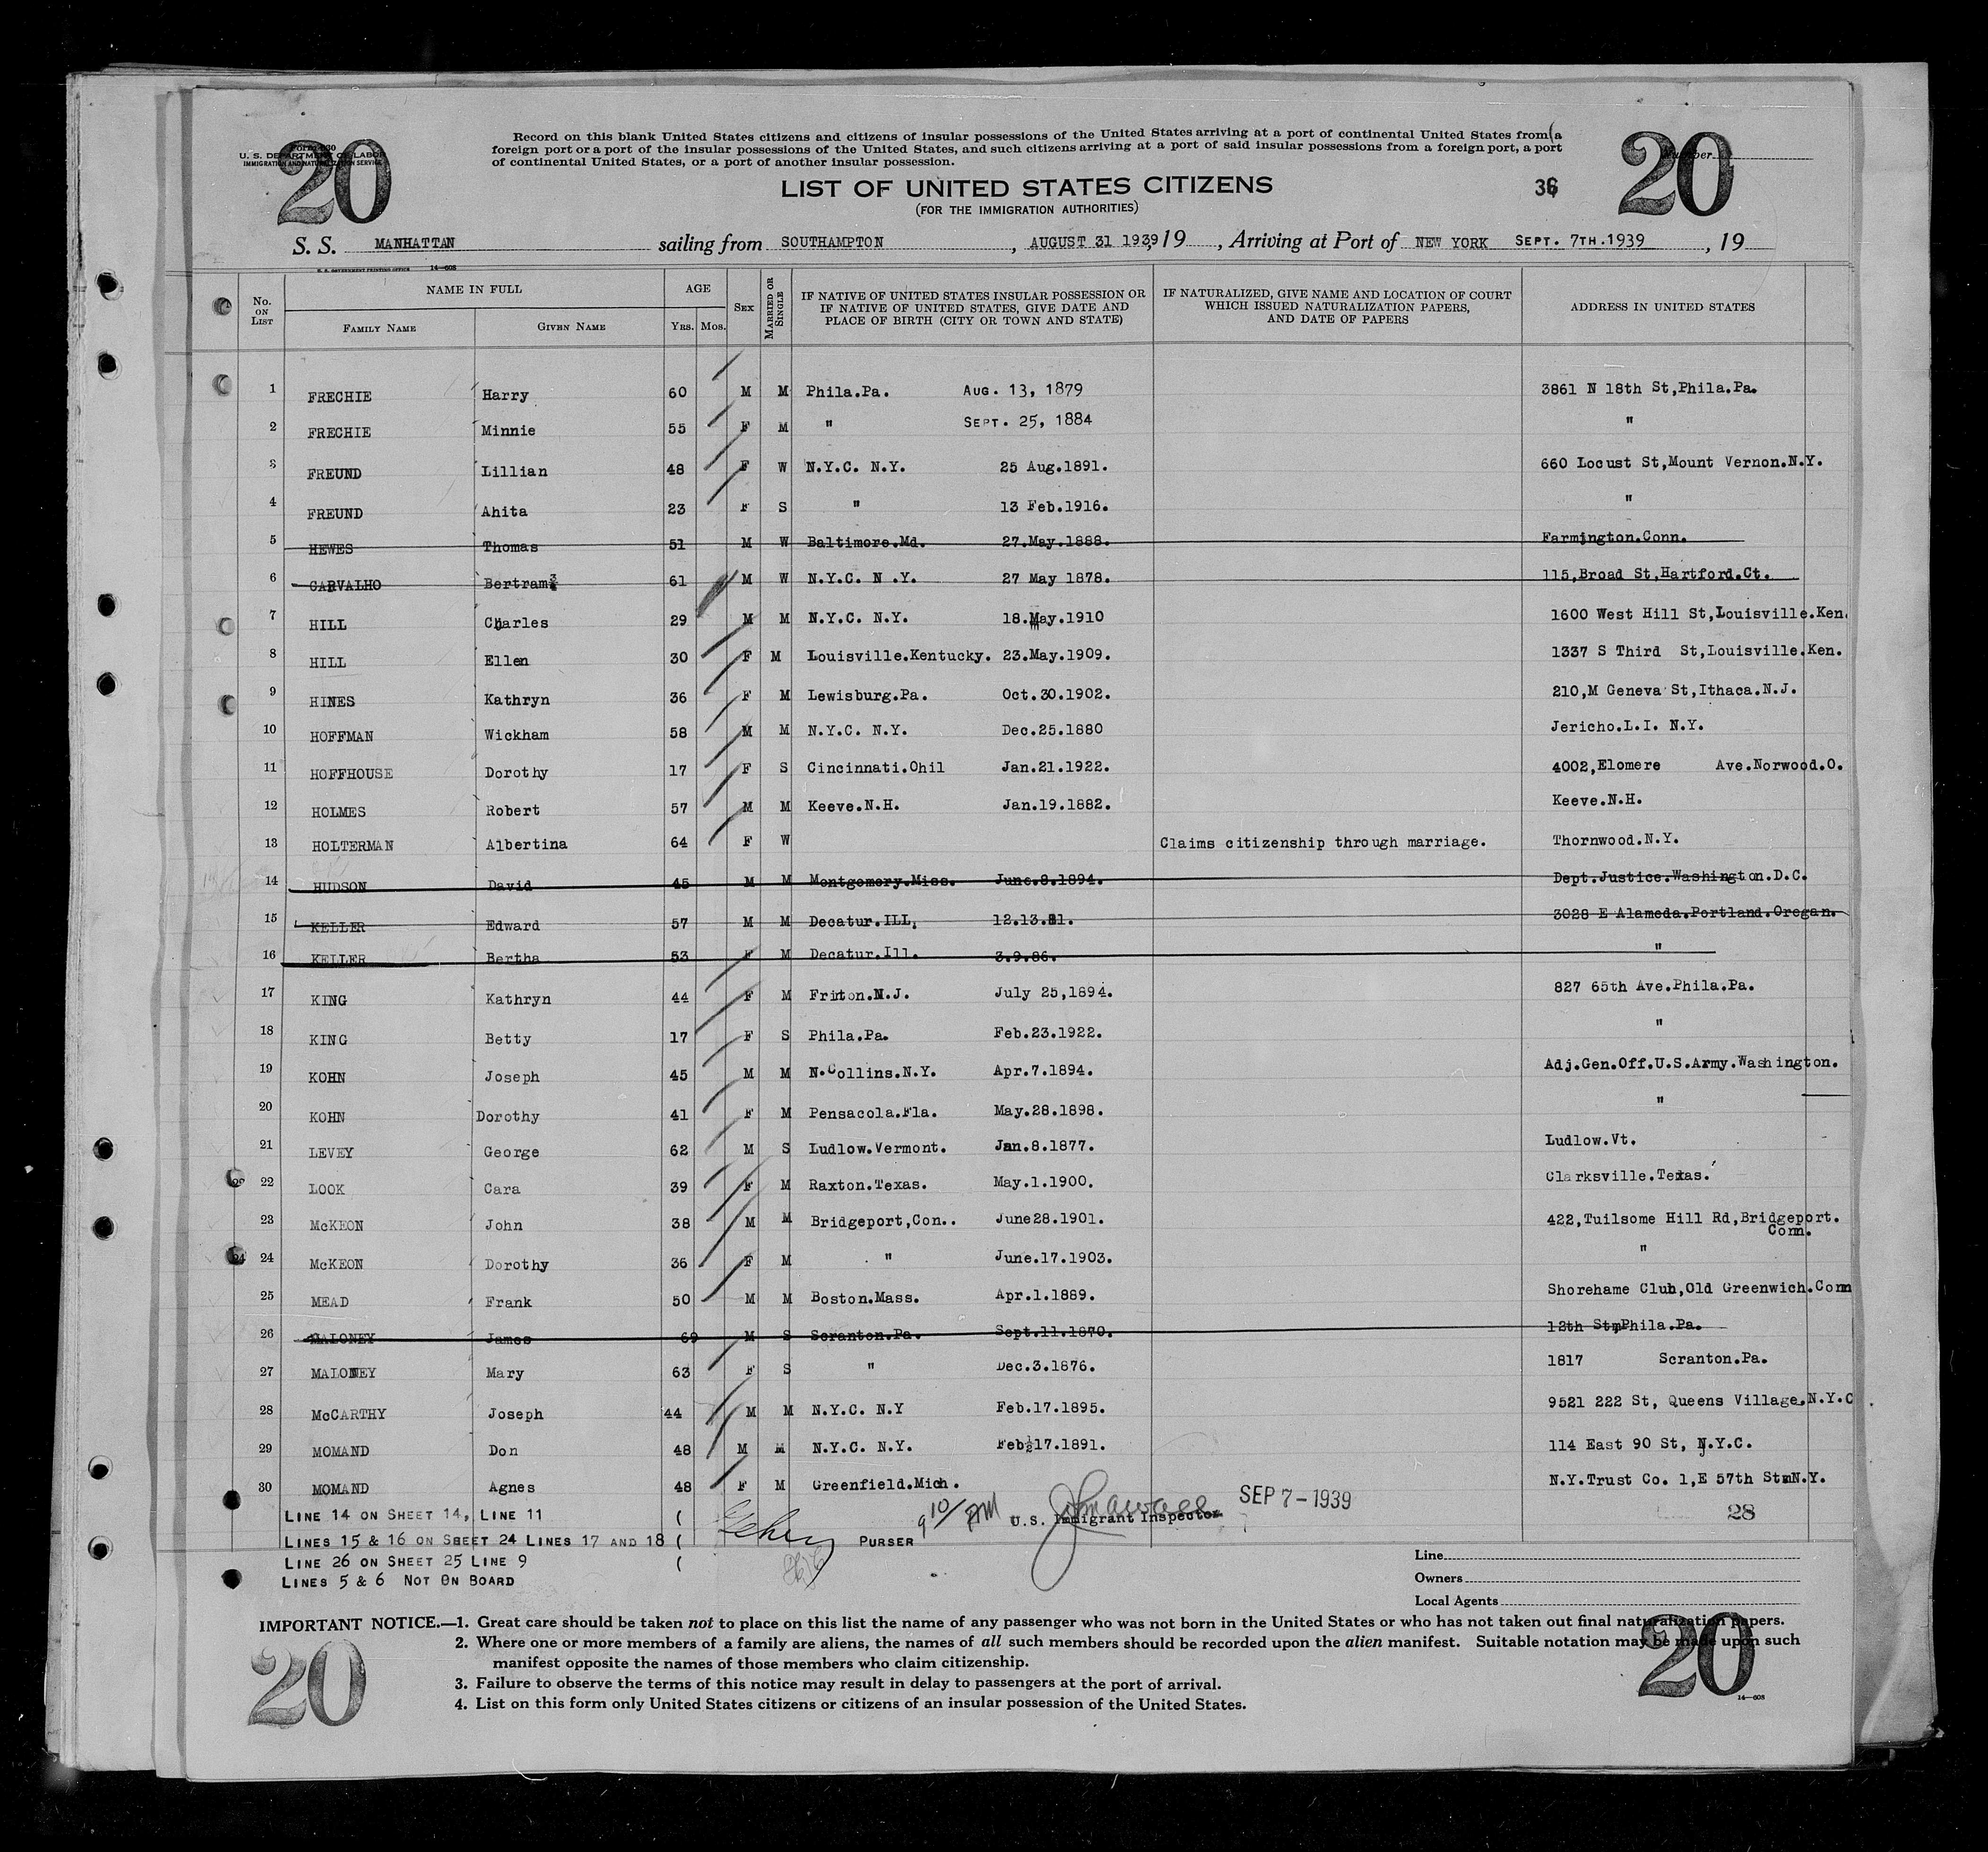 20
Form 630
U. S. DEPARTMENT OF LABOR
IMMIGRATION AND NATURALIZATION SERVICE
Record on this blank United States citizens and citizens of insular possessions of the United States arriving at a port of continental United States from a
foreign port or a port of the insular possessions of the United States, and such citizens arriving at a port of said insular possessions from a foreign port, a port
of continental United States, or a port of another insular possession.
20
Number
LIST OF UNITED STATES CITIZENS
36
(FOR THE IMMIGRATION AUTHORITIES)
S. S. MANHATTAN sailing from SOUTHAMPTON, AUGUST 31 1939 19, Arriving at Port of NEW YORK SEPT. 7TH.1939, 19
U. S. GOVERNMENT PRINTING OFFICE 14—608
No. ON LIST
NAME IN FULL
FAMILY NAME
GIVEN NAME
AGE
YRS. MOS.
SEX
MARRIED OR SINGLE
IF NATIVE OF UNITED STATES INSULAR POSSESSION OR
IF NATIVE OF UNITED STATES, GIVE DATE AND
PLACE OF BIRTH (CITY OR TOWN AND STATE)
IF NATURALIZED, GIVE NAME AND LOCATION OF COURT
WHICH ISSUED NATURALIZATION PAPERS,
AND DATE OF PAPERS
ADDRESS IN UNITED STATES
1 FRECHIE Harry 60 M M Phila.Pa. AUG. 13, 1879 3861 N 18th St,Phila.Pa.
2 FRECHIE Minnie 55 F M " SEPT. 25, 1884 "
3 FREUND Lillian 48 F W N.Y.C. N.Y. 25 Aug.1891. 660 Locust St,Mount Vernon.N.Y.
4 FREUND Ahita 23 F S " 13 Feb.1916. "
5 HEWES Thomas 51 M W Baltimore.Md. 27.May.1888. Farmington.Conn.
6 CARVALHO Bertram 61 M W N.Y.C. N .Y. 27 May 1878. 115,Broad St,Hartford.Ct.
7 HILL Charles 29 M M N.Y.C. N.Y. 18.May.1910 1600 West Hill St,Louisville.Ken.
8 HILL Ellen 30 F M Louisville.Kentucky. 23.May.1909. 1337 S Third St,Louisville.Ken.
9 HINES Kathryn 36 F M Lewisburg.Pa. Oct.30.1902. 210,M Geneva St,Ithaca.N.J.
10 HOFFMAN Wickham 58 M M N.Y.C. N.Y. Dec.25.1880 Jericho.L.I. N.Y.
11 HOFFHOUSE Dorothy 17 F S Cincinnati.Ohil Jan.21.1922. 4002,Elomere Ave.Norwood.O.
12 HOLMES Robert 57 M M Keeve.N.H. Jan.19.1882. Keeve.N.H.
13 HOLTERMAN Albertina 64 F W Claims citizenship through marriage. Thornwood.N.Y.
14 HUDSON David 45 M M Montgomery.Miss. June.8.1894. Dept.Justice.Washington.D.C.
15 KELLER Edward 57 M M Decatur.ILL, 12.13.81. 3028 E Alameda.Portland.Oregan.
16 KELLER Bertha 53 F M Decatur.Ill. 3.9.86. "
17 KING Kathryn 44 F M Friton.N.J. July 25,1894. 827 65th Ave.Phila.Pa.
18 KING Betty 17 F S Phila.Pa. Feb.23.1922. "
19 KOHN Joseph 45 M M N.Collins.N.Y. Apr.7.1894. Adj.Gen.Off.U.S.Army.Washington.
20 KOHN Dorothy 41 F M Pensacola.Fla. May.28.1898. "
21 LEVEY George 62 M S Ludlow.Vermont. Jan.8.1877. Ludlow.Vt.
22 LOOK Cara 39 F M Raxton.Texas. May.1.1900. Clarksville.Texas.
23 McKEON John 38 M M Bridgeport,Con.. June28.1901. 422,Tuilsome Hill Rd,Bridgeport.
Conn.
24 McKEON Dorothy 36 F M " June.17.1903. "
25 MEAD Frank 50 M M Boston.Mass. Apr.1.1889. Shorehame Club,Old Greenwich.Conn
26 MALONEY James 69 M S Scranton.Pa. Sept.11.1870. 12th St,Phila.Pa.
27 MALONEY Mary 63 F S " Dec.3.1876. 1817 Scranton.Pa.
28 McCARTHY Joseph 44 M M N.Y.C. N.Y Feb.17.1895. 9521 222 St, Queens Village.N.Y.C
29 MOMAND Don 48 M M N.Y.C. N.Y. Feb.17.1891. 114 East 90 St, N.Y.C.
30 MOMAND Agnes 48 F M Greenfield.Mich. N.Y.Trust Co. 1,E 57th St,N.Y.
LINE 14 ON SHEET 14, LINE 11 (
LINES 15 & 16 ON SHEET 24 LINES 17 AND 18 (
LINE 26 ON SHEET 25 LINE 9 (
LINES 5 & 6 NOT ON BOARD
PURSER
9 10/ AM
U.S. Immigrant Inspector
SEP 7 - 1939
28
Line
Owners
Local Agents
IMPORTANT NOTICE.—1. Great care should be taken not to place on this list the name of any passenger who was not born in the United States or who has not taken out final naturalization papers.
2. Where one or more members of a family are aliens, the names of all such members should be recorded upon the alien manifest. Suitable notation may be made upon such
manifest opposite the names of those members who claim citizenship.
3. Failure to observe the terms of this notice may result in delay to passengers at the port of arrival.
4. List on this form only United States citizens or citizens of an insular possession of the United States.
20
20
14—608